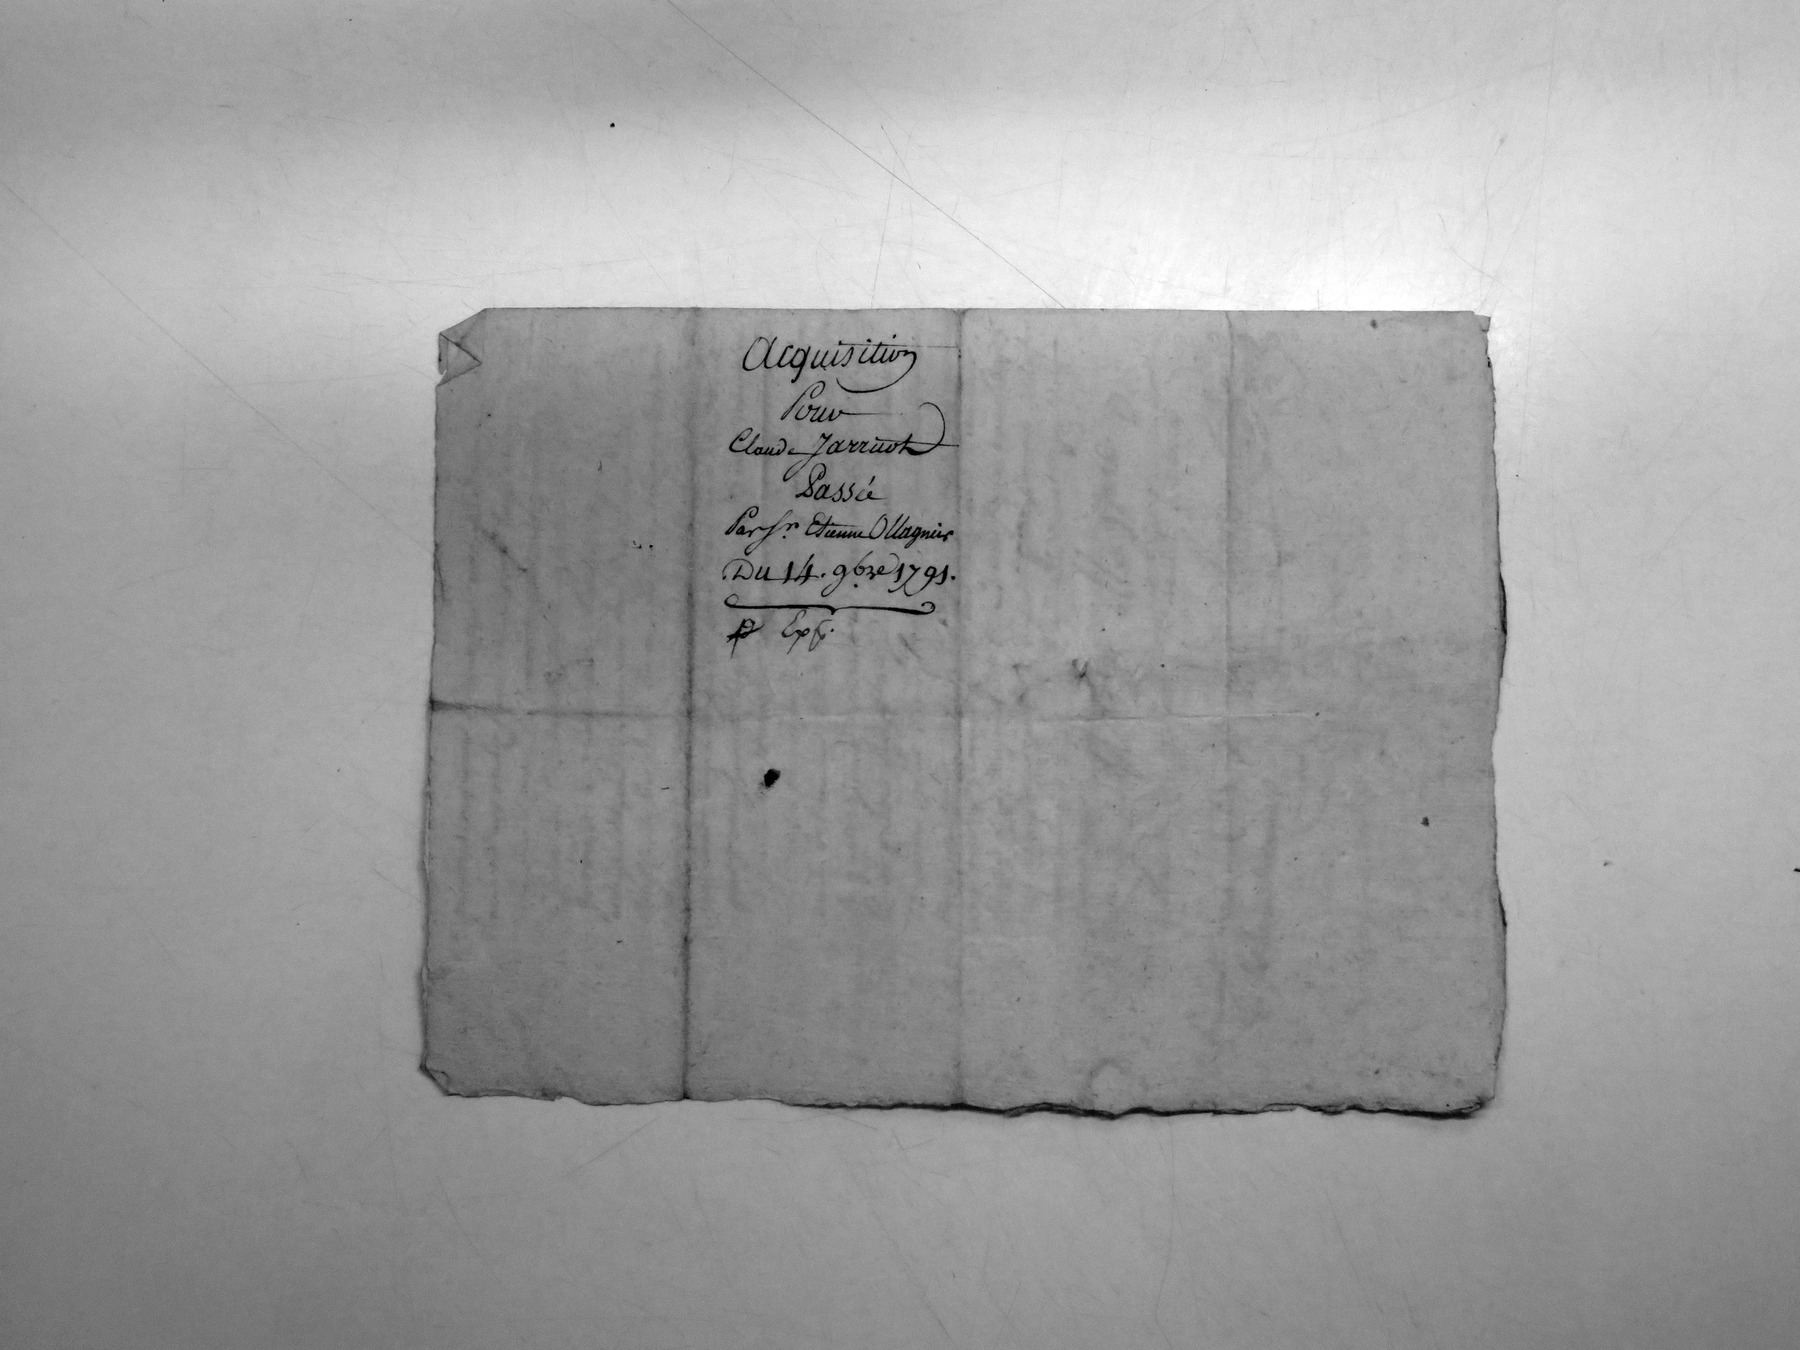 Acquisition
Pour
Claude Jarricot
Passée
Par Sr. Etienne Ollagnier
Du 14. 9bre 1791.